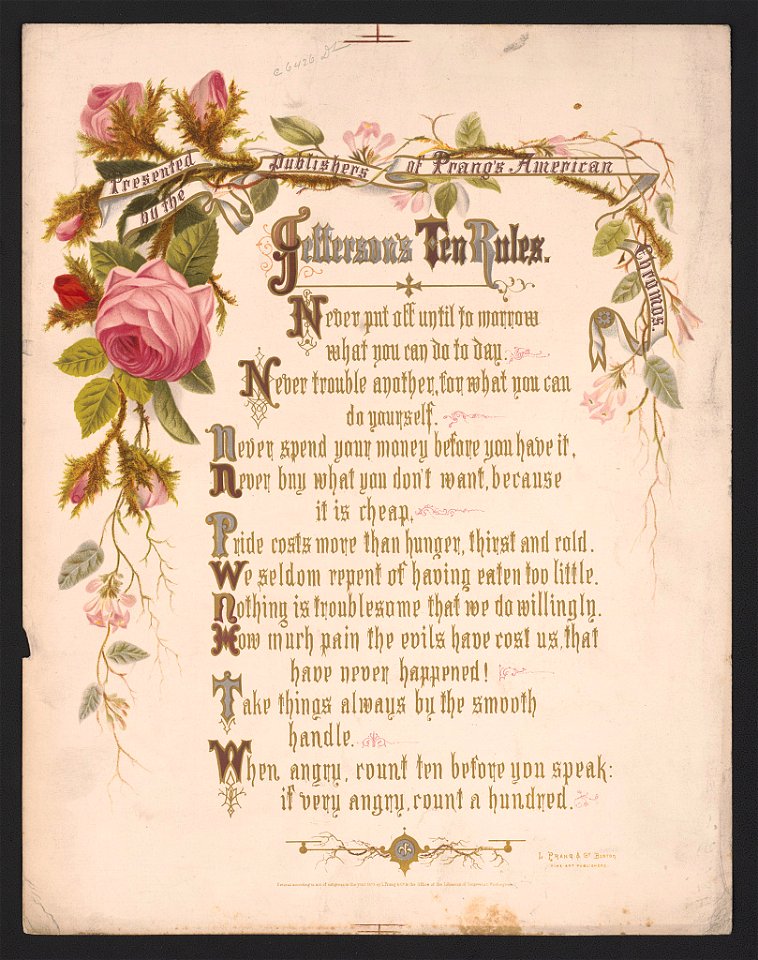 Presented by the Publishers of Prang's American Chromos.
Jefferson's Ten Rules.
Never put off until to morrow
what you can do to day.
Never trouble another, for what you can
do yourself.
Never spend your money before you have it,
Never buy what you don't want, because
it is cheap,
Pride costs more than hunger, thirst and cold.
We seldom repent of having eaten too little.
Nothing is troublesome that we do willingly.
How much pain the evils have cost us, that
have never happened!
Take things always by the smooth
handle.
When angry, count ten before you speak:
if very angry, count a hundred.
L. Prang & Co. Boston
Fine Art Publishers